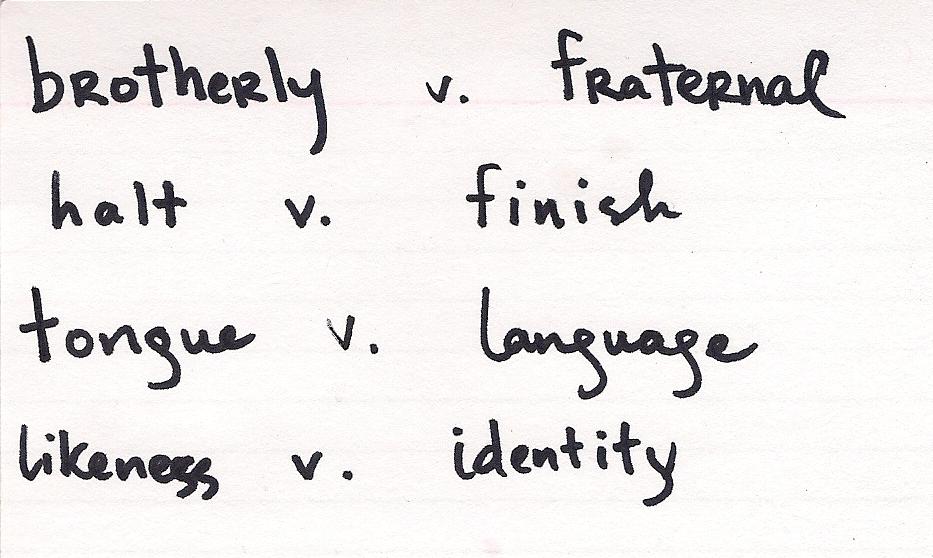 brotherly v. fraternal
halt v. finish
tongue v. language
likeness v. identity